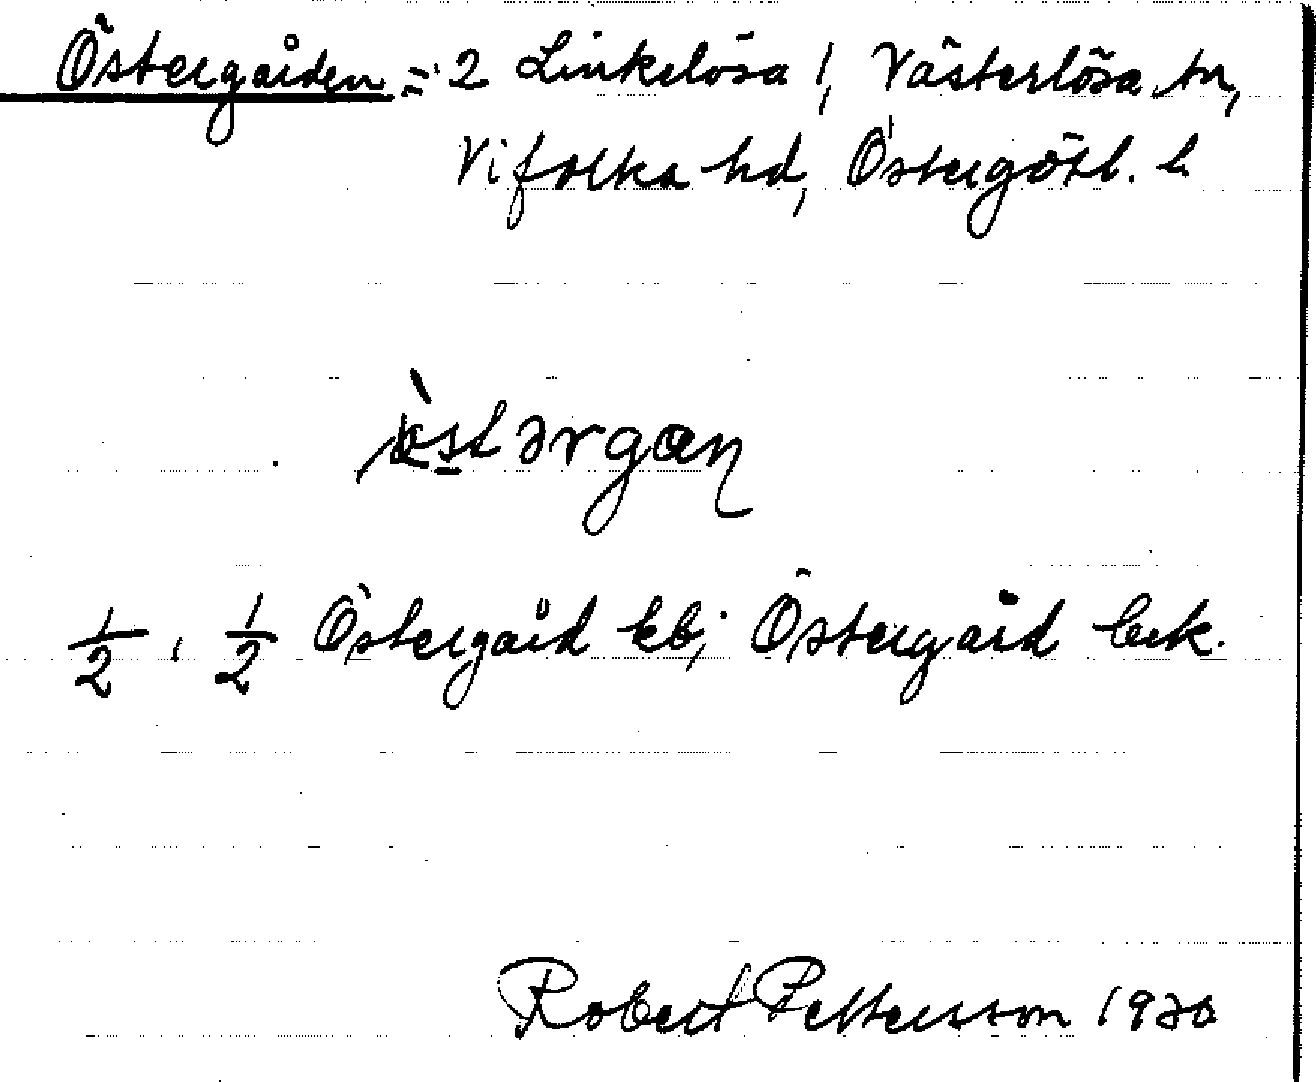 Östergården = 2 Linkelösa 1, Västerlösa sn,
Vifolka hd, Östergötl. l.
östərgan
1/2, 1/2 Östergård kb; Östergård bek.
Robert Pettersson 1930